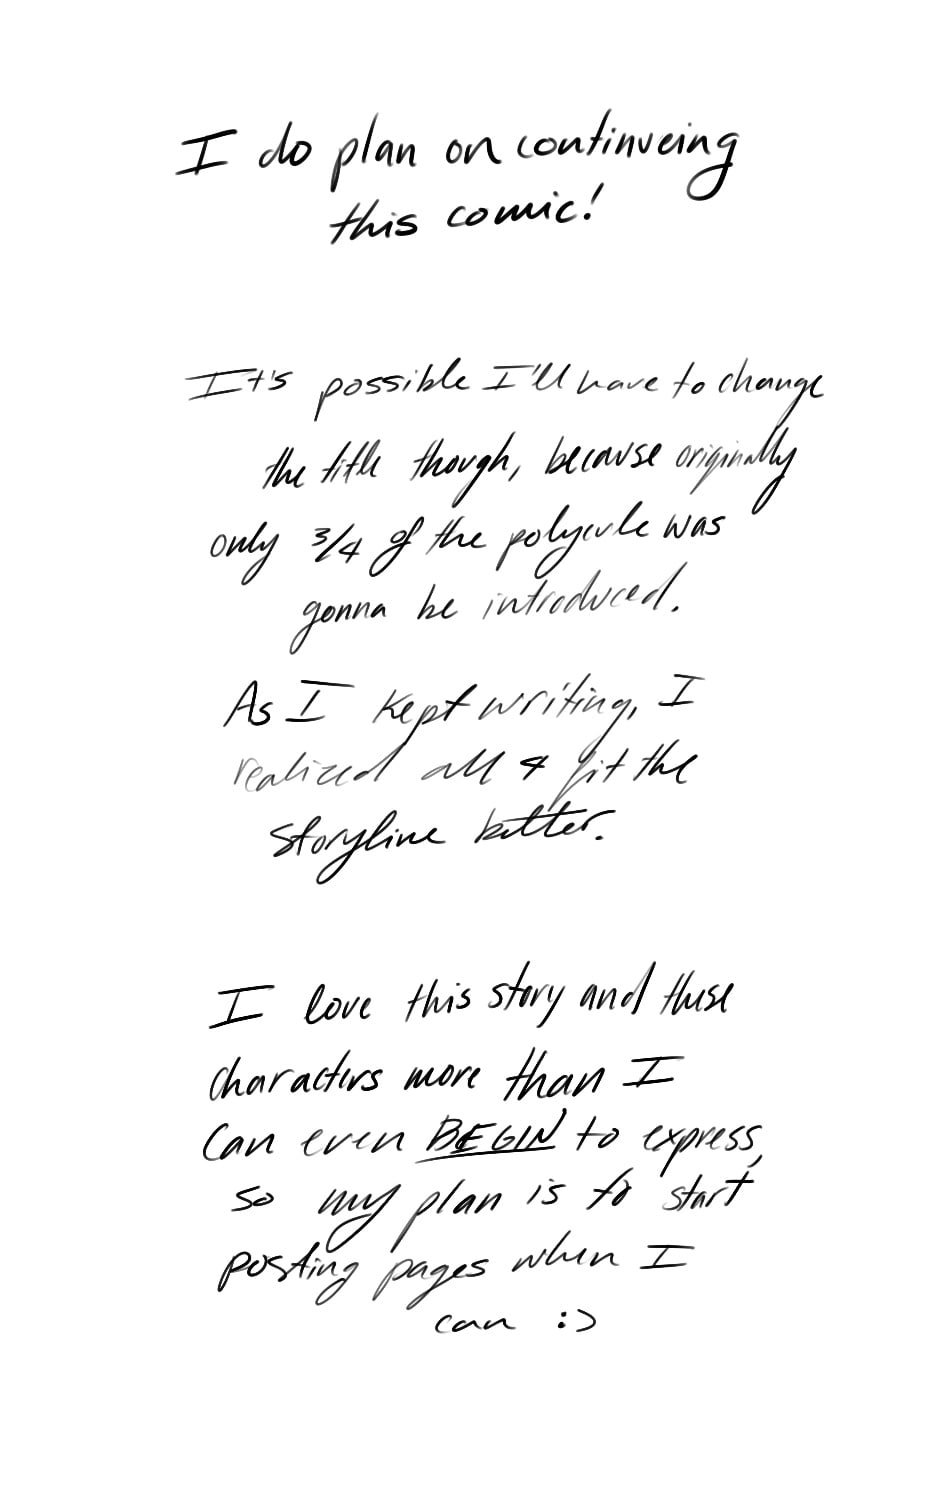 I do plan on continueing
this comic!
It's possible I'll have to change
the title though, because originally
only 3/4 of the polycule was
gonna be introduced.
As I kept writing, I
realized all 4 fit the
storyline better.
I love this story and these
characters more than I
can even BEGIN to express,
so my plan is to start
posting pages when I
can :)